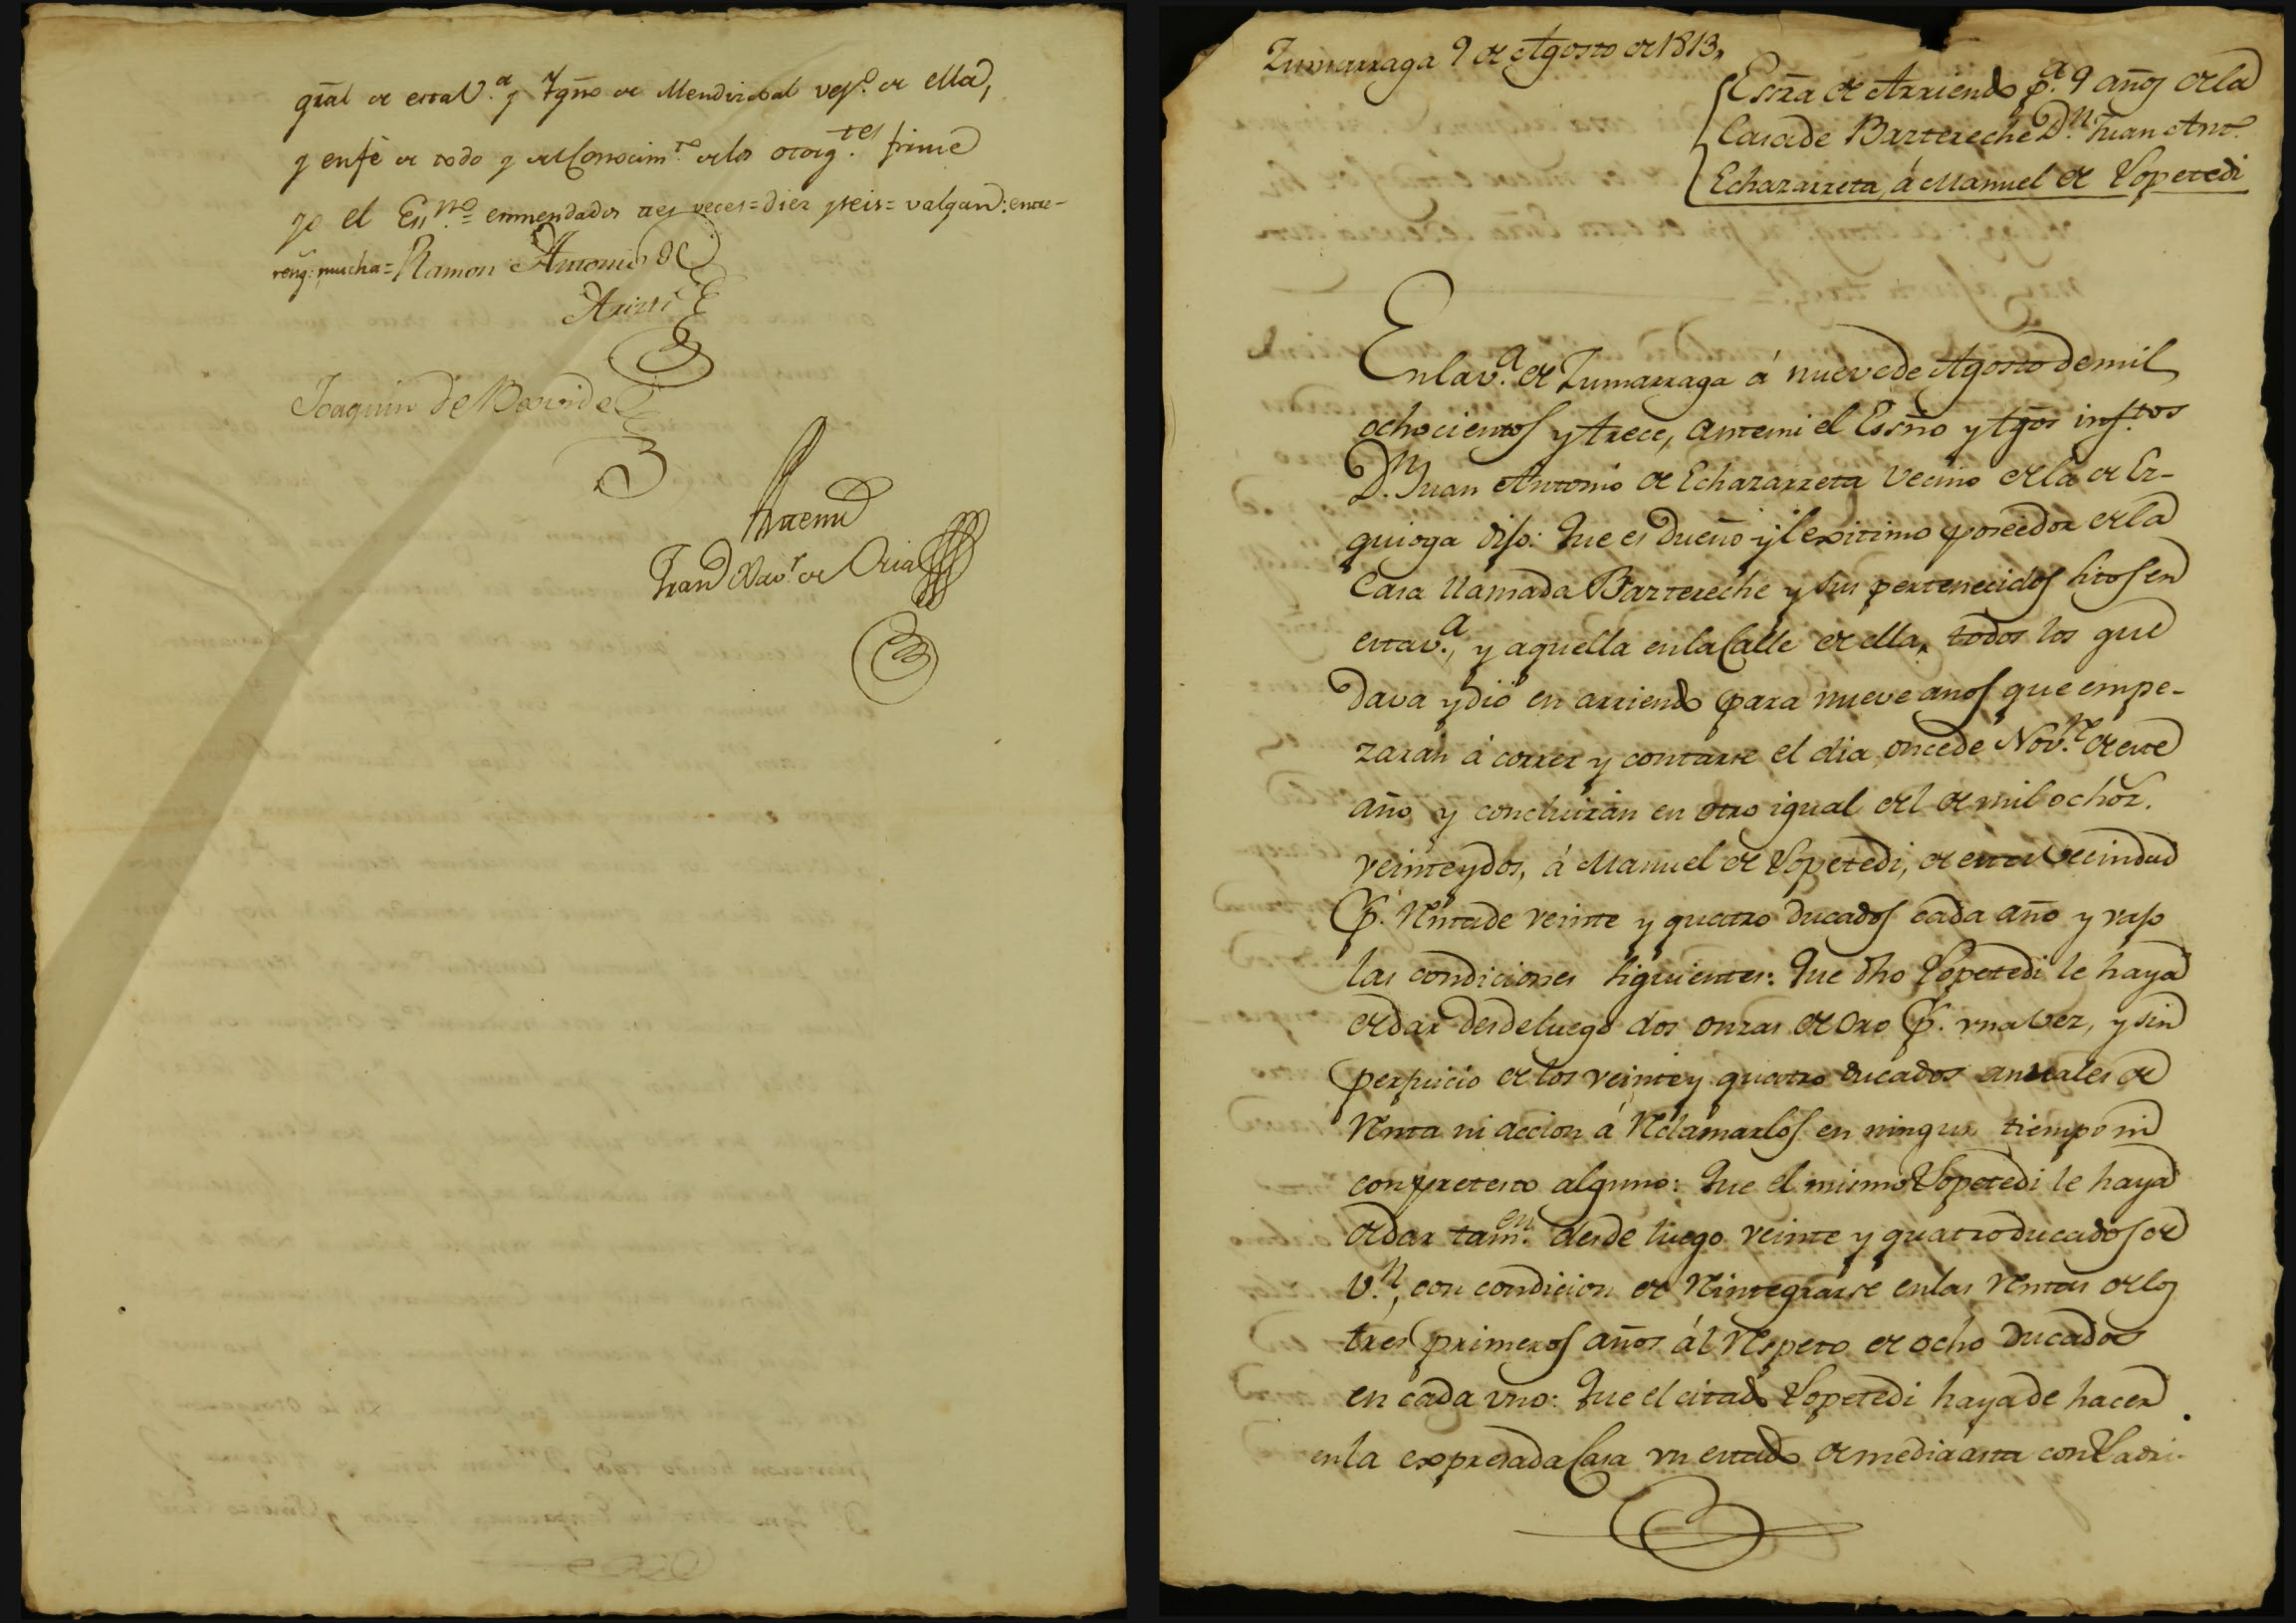 gral de esta V.ª y Ygno de Mendizabal vez.º de ella,
y en fé de todo y del Conocim.to de los otorg.tes firmé
yo el Es.no = enmendados tres veces = diez y seis = valgan: entre-
reng: mucha = Ramon Antonio de
Arizti
Joaquin de
Antemi
Fran.co Xav.r de Oria
Zumarraga 9 de Agosto de 1813,
Essra de Arriendo p.ª 9 años de la
Casa de Bartereche D.n Juan Ant.º
Echazarreta, á Manuel de Sopetedi
En la v.ª de Zumarraga á nueve de Agosto de mil
ochocientos y trece, ante mi el Essno y tgos inf.tos
D.n Juan Antonio de Echazarreta vecino de la de Ez-
quioga dijo: Que es Dueño y lexitimo poseedor de la
Casa llamada Bartereche y sus pertenecidos sitos en
esta v.ª, y aquella en la Calle de ella, todos los que
dava y dió en arriendo para nueve años que empe-
zarán á correr y contarse el dia once de Nov.re de este
año y concluirán en otro igual del de mil ochoz.
veinte y dos, á Manuel de Sopetedi, de esta vecindad
p. Renta de veinte y quatro ducados cada año y vajo
las condiciones siguientes: Que dho Sopetedi le haya
de dar desde luego dos onzas de Oro p. una vez, y sin
perjuicio de los veinte y quatro ducados anuales de
Renta ni accion á Reclamarlos en ningun tiempo ni
con pretesto alguno: Que el mismo Sopetedi le haya
de dar tam.en desde luego veinte y quatro ducados de
v.n, con condicion de Reintegrarse en las Rentas de los
tres primeros años ál Respeto de ocho Ducados
en cada uno: Que el citado Sopetedi haya de hacer
en la expresada Casa un estado de media asta con Ladri-